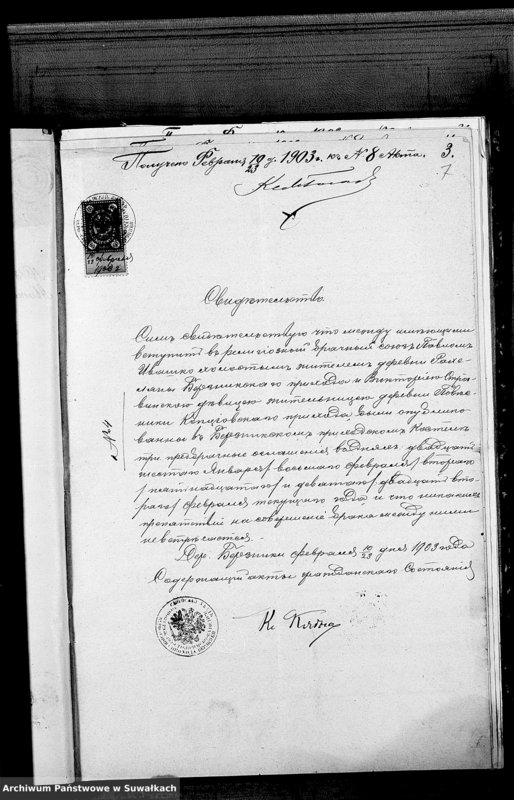 Получено Февраля 10/23 д. 1903 г. къ № 8 Акта. 3.
7
Свидѣтельство
Симъ свидѣтельствую что между имѣющими
вступить въ религіозный брачный союзъ Павломъ
Ивашко холостымъ жителемъ деревни
Березникскаго прихода и Викторіею
дѣвицею жительницею деревни
прихода были опублико-
ваны въ Березникскомъ приходскомъ Костелѣ
три предбрачныя оглашенія въ дняхъ: двадцать
шестого Января/восьмого февраля/ второго
/пятнадцатаго/ и девятаго/двадцать вто-
рого/ февраля текущаго года и что никакихъ
препятствій на совершеніе брака между ними
не встрѣчается.
Дер. Березники февраля 10/23 дня 1903 года
Содержащій акты гражданскаго Состоянія
№ 4
Archiwum Państwowe w Suwałkach